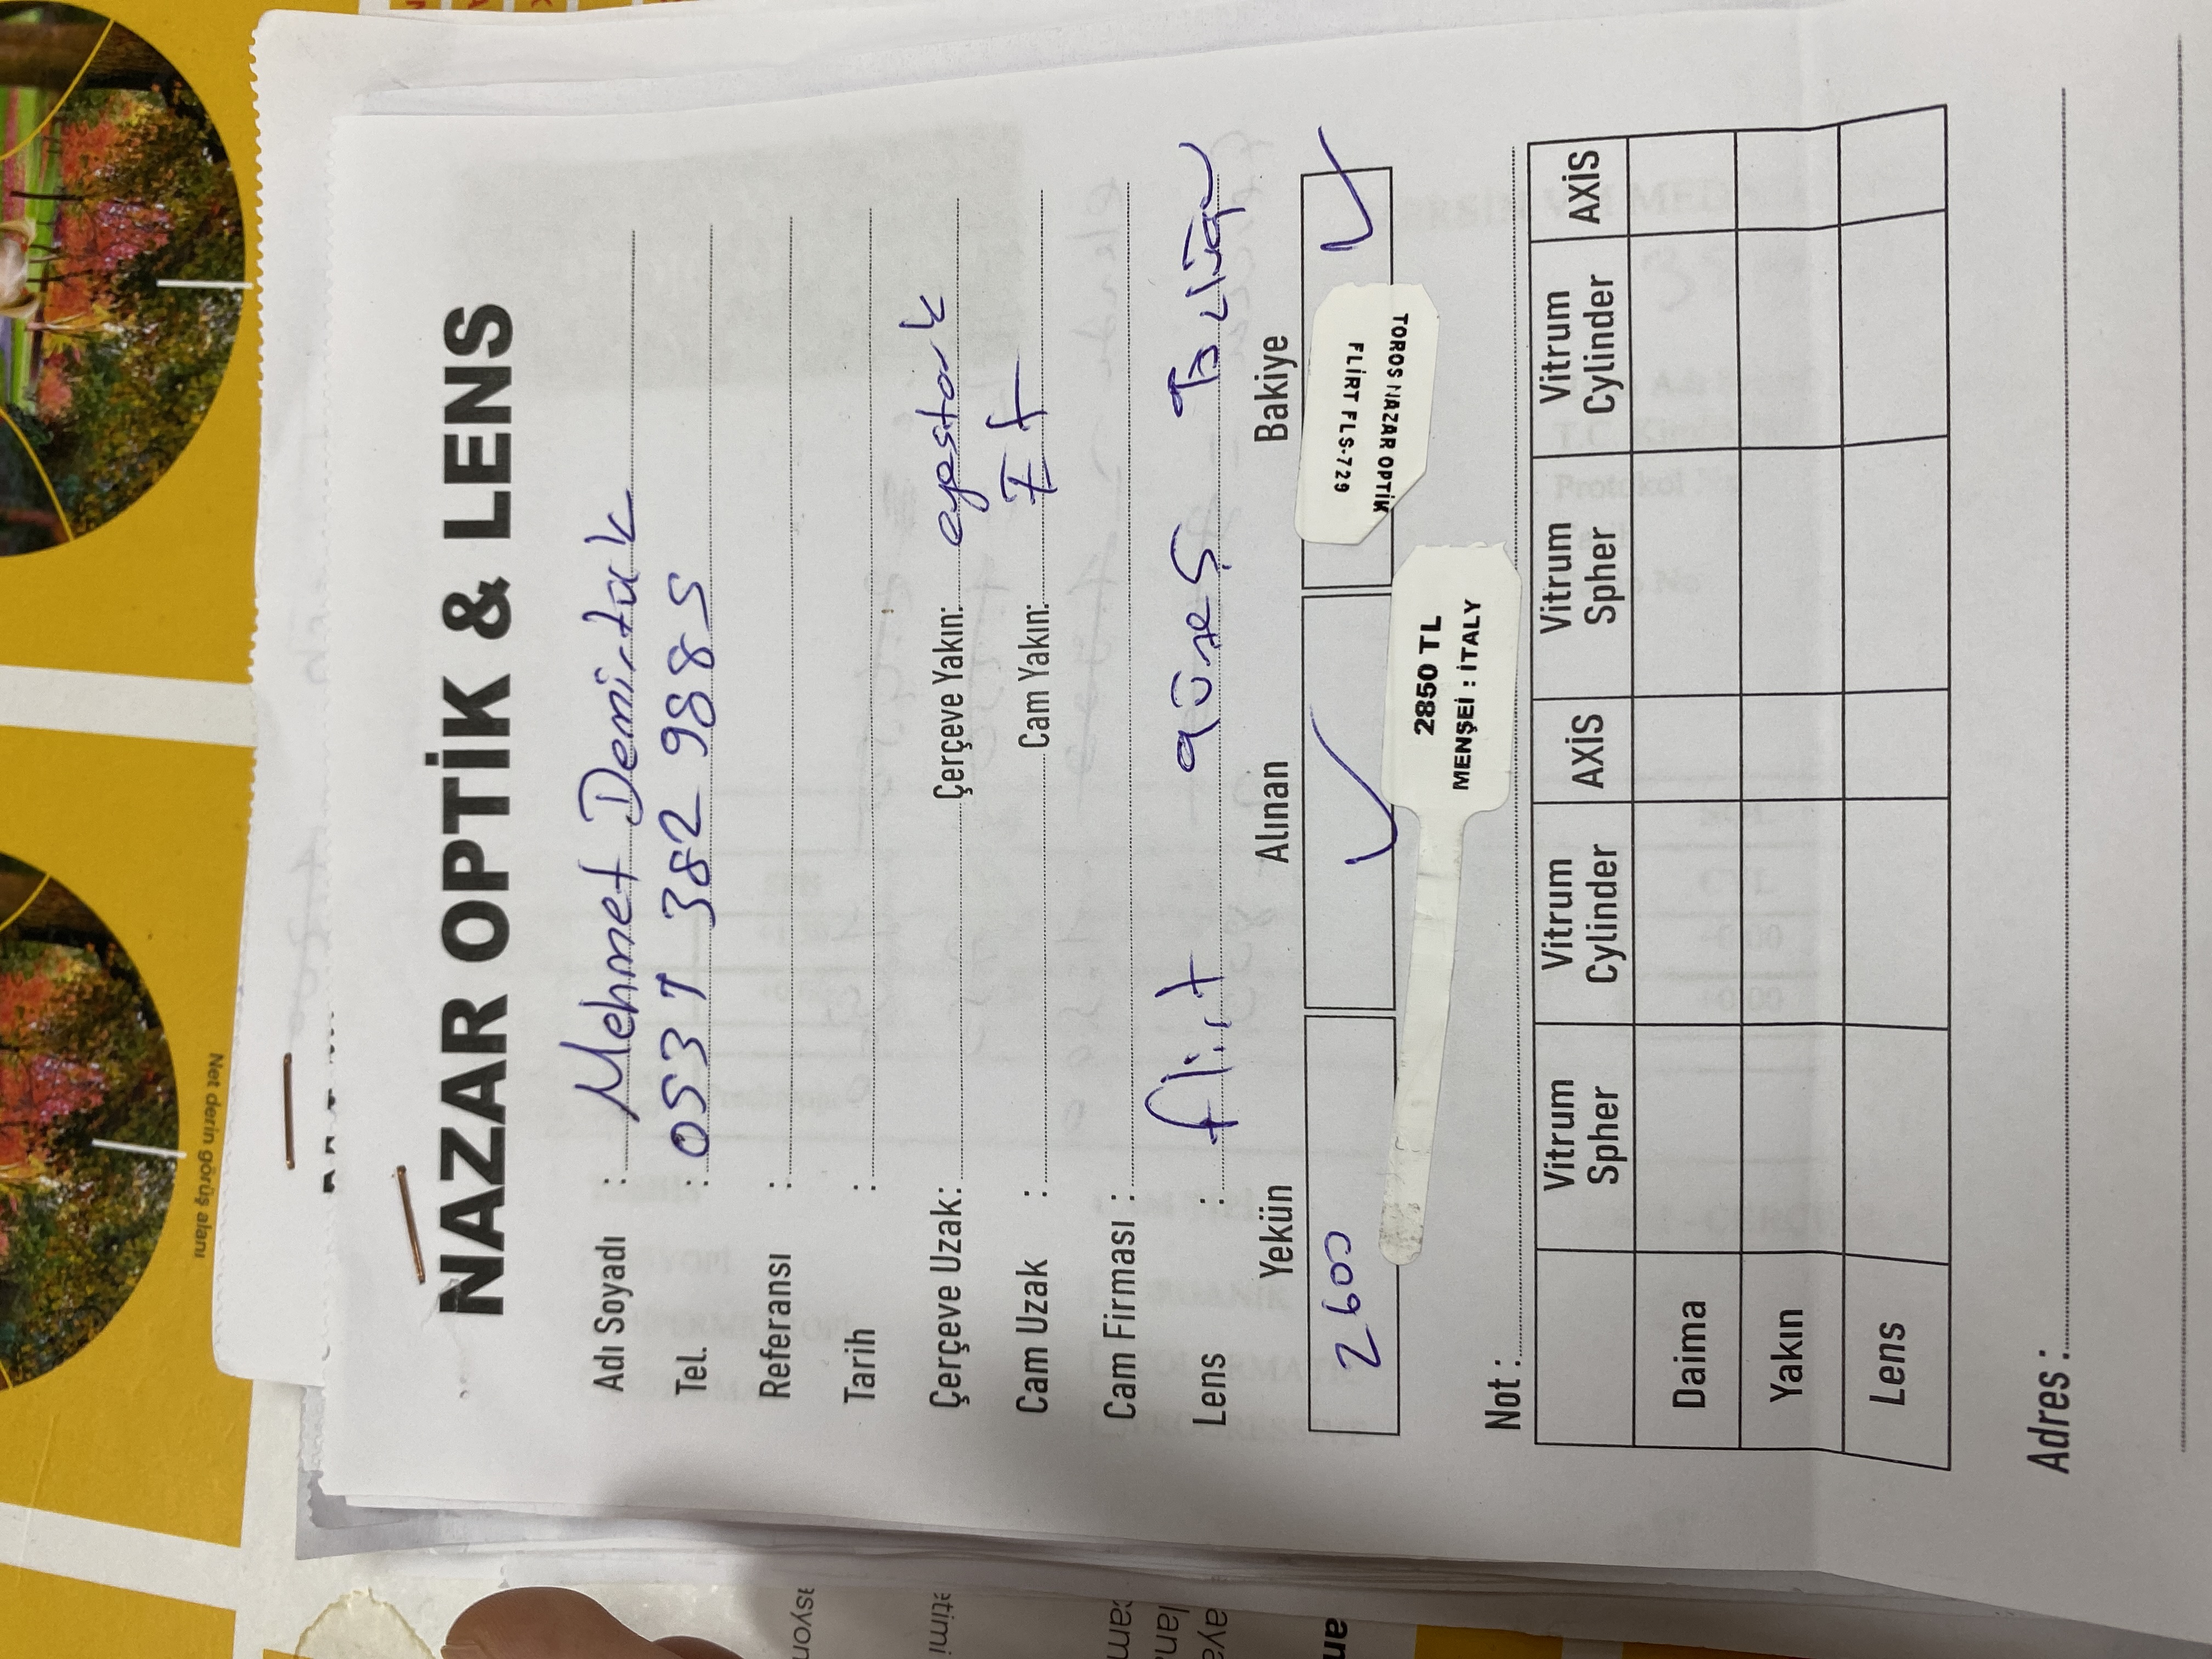 Net derin görüş alanı
NAZAR OPTİK & LENS
Adı Soyadı : Mehmet Demirtak
Tel. : 0531 382 9885
Referansı :
Tarih :
Çerçeve Uzak: Çerçeve Yakın: eyestark
Cam Uzak : Cam Yakın:
Cam Firması :
Lens : flirt güneş Gözlüğü
Yekün Alınan Bakiye
2600 ✓ ✓
TOROS NAZAR OPTİK
FLİRT FLS-729
2850 TL
MENŞEİ : İTALY
Not :
Vitrum Spher Vitrum Cylinder AXİS Vitrum Spher Vitrum Cylinder AXİS
Daima
Yakın
Lens
Adres :